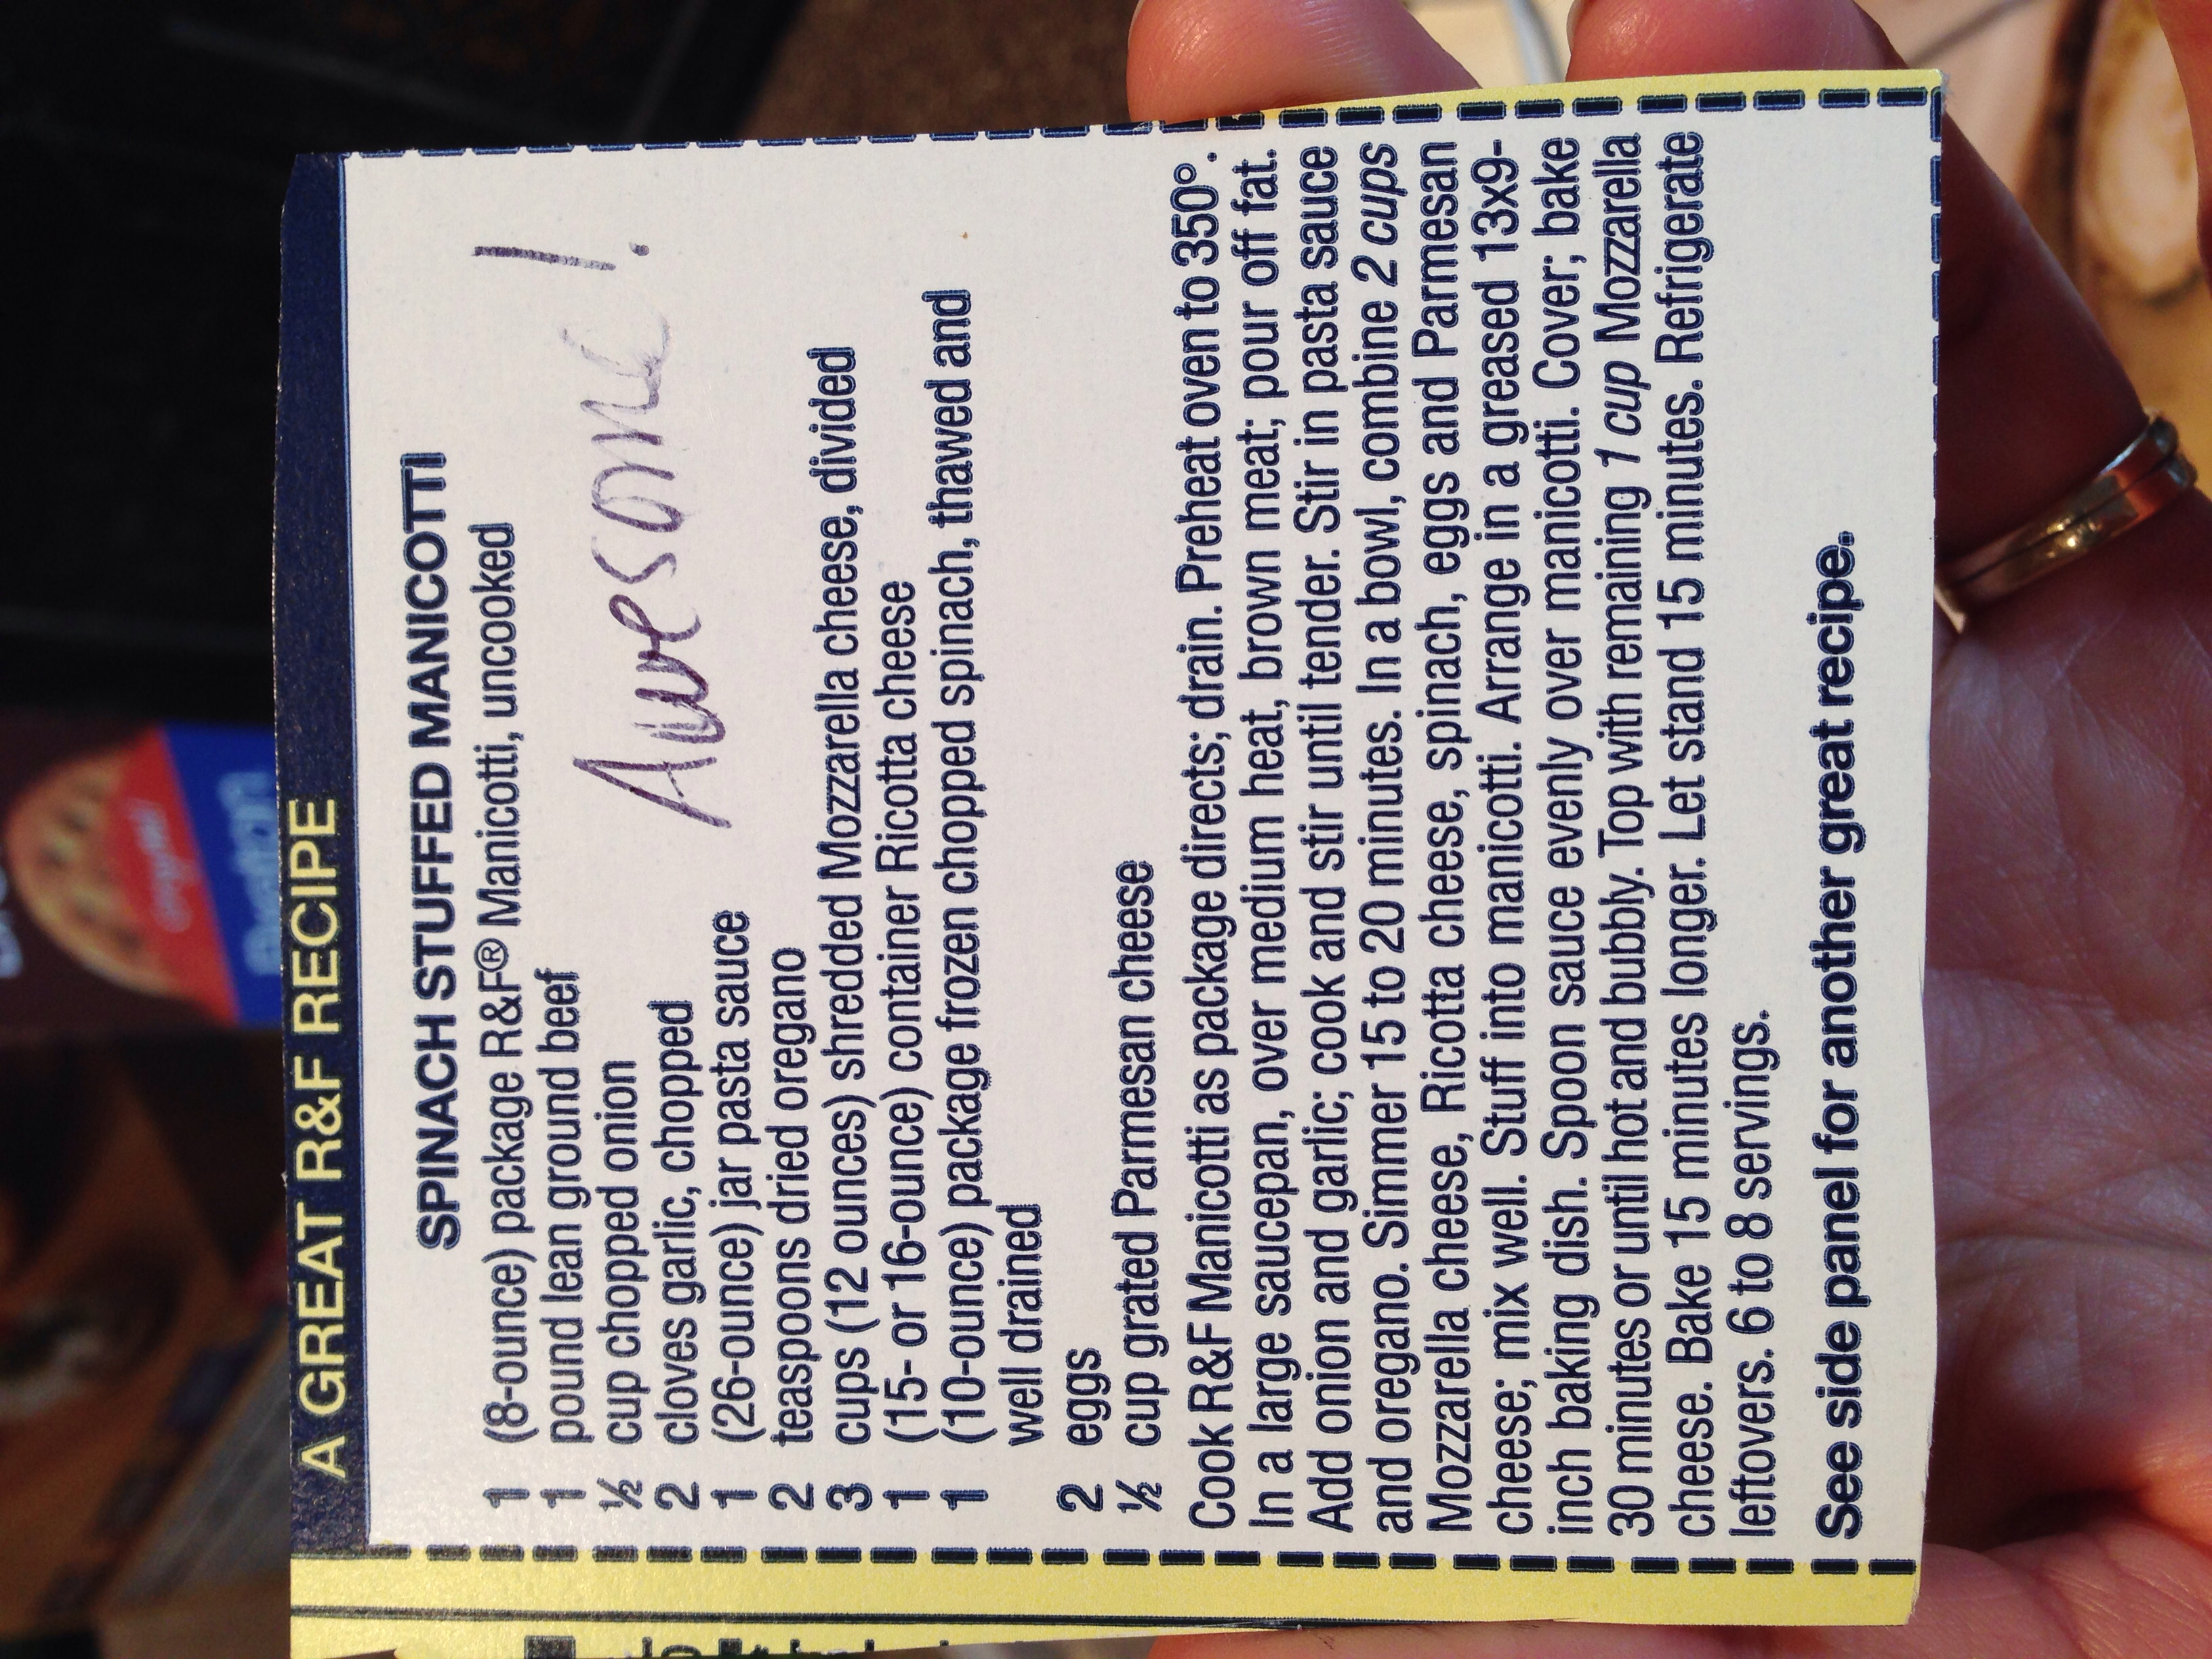 A GREAT R&F RECIPE
SPINACH STUFFED MANICOTTI
1 (8-ounce) package R&F® Manicotti, uncooked
1 pound lean ground beef
½ cup chopped onion
2 cloves garlic, chopped
Awesome!
1 (26-ounce) jar pasta sauce
2 teaspoons dried oregano
3 cups (12 ounces) shredded Mozzarella cheese, divided
1 (15- or 16-ounce) container Ricotta cheese
1 (10-ounce) package frozen chopped spinach, thawed and
well drained
2 eggs
½ cup grated Parmesan cheese
Cook R&F Manicotti as package directs; drain. Preheat oven to 350°.
In a large saucepan, over medium heat, brown meat; pour off fat.
Add onion and garlic; cook and stir until tender. Stir in pasta sauce
and oregano. Simmer 15 to 20 minutes. In a bowl, combine 2 cups
Mozzarella cheese, Ricotta cheese, spinach, eggs and Parmesan
cheese; mix well. Stuff into manicotti. Arrange in a greased 13x9-
inch baking dish. Spoon sauce evenly over manicotti. Cover; bake
30 minutes or until hot and bubbly. Top with remaining 1 cup Mozzarella
cheese. Bake 15 minutes longer. Let stand 15 minutes. Refrigerate
leftovers. 6 to 8 servings.
See side panel for another great recipe.